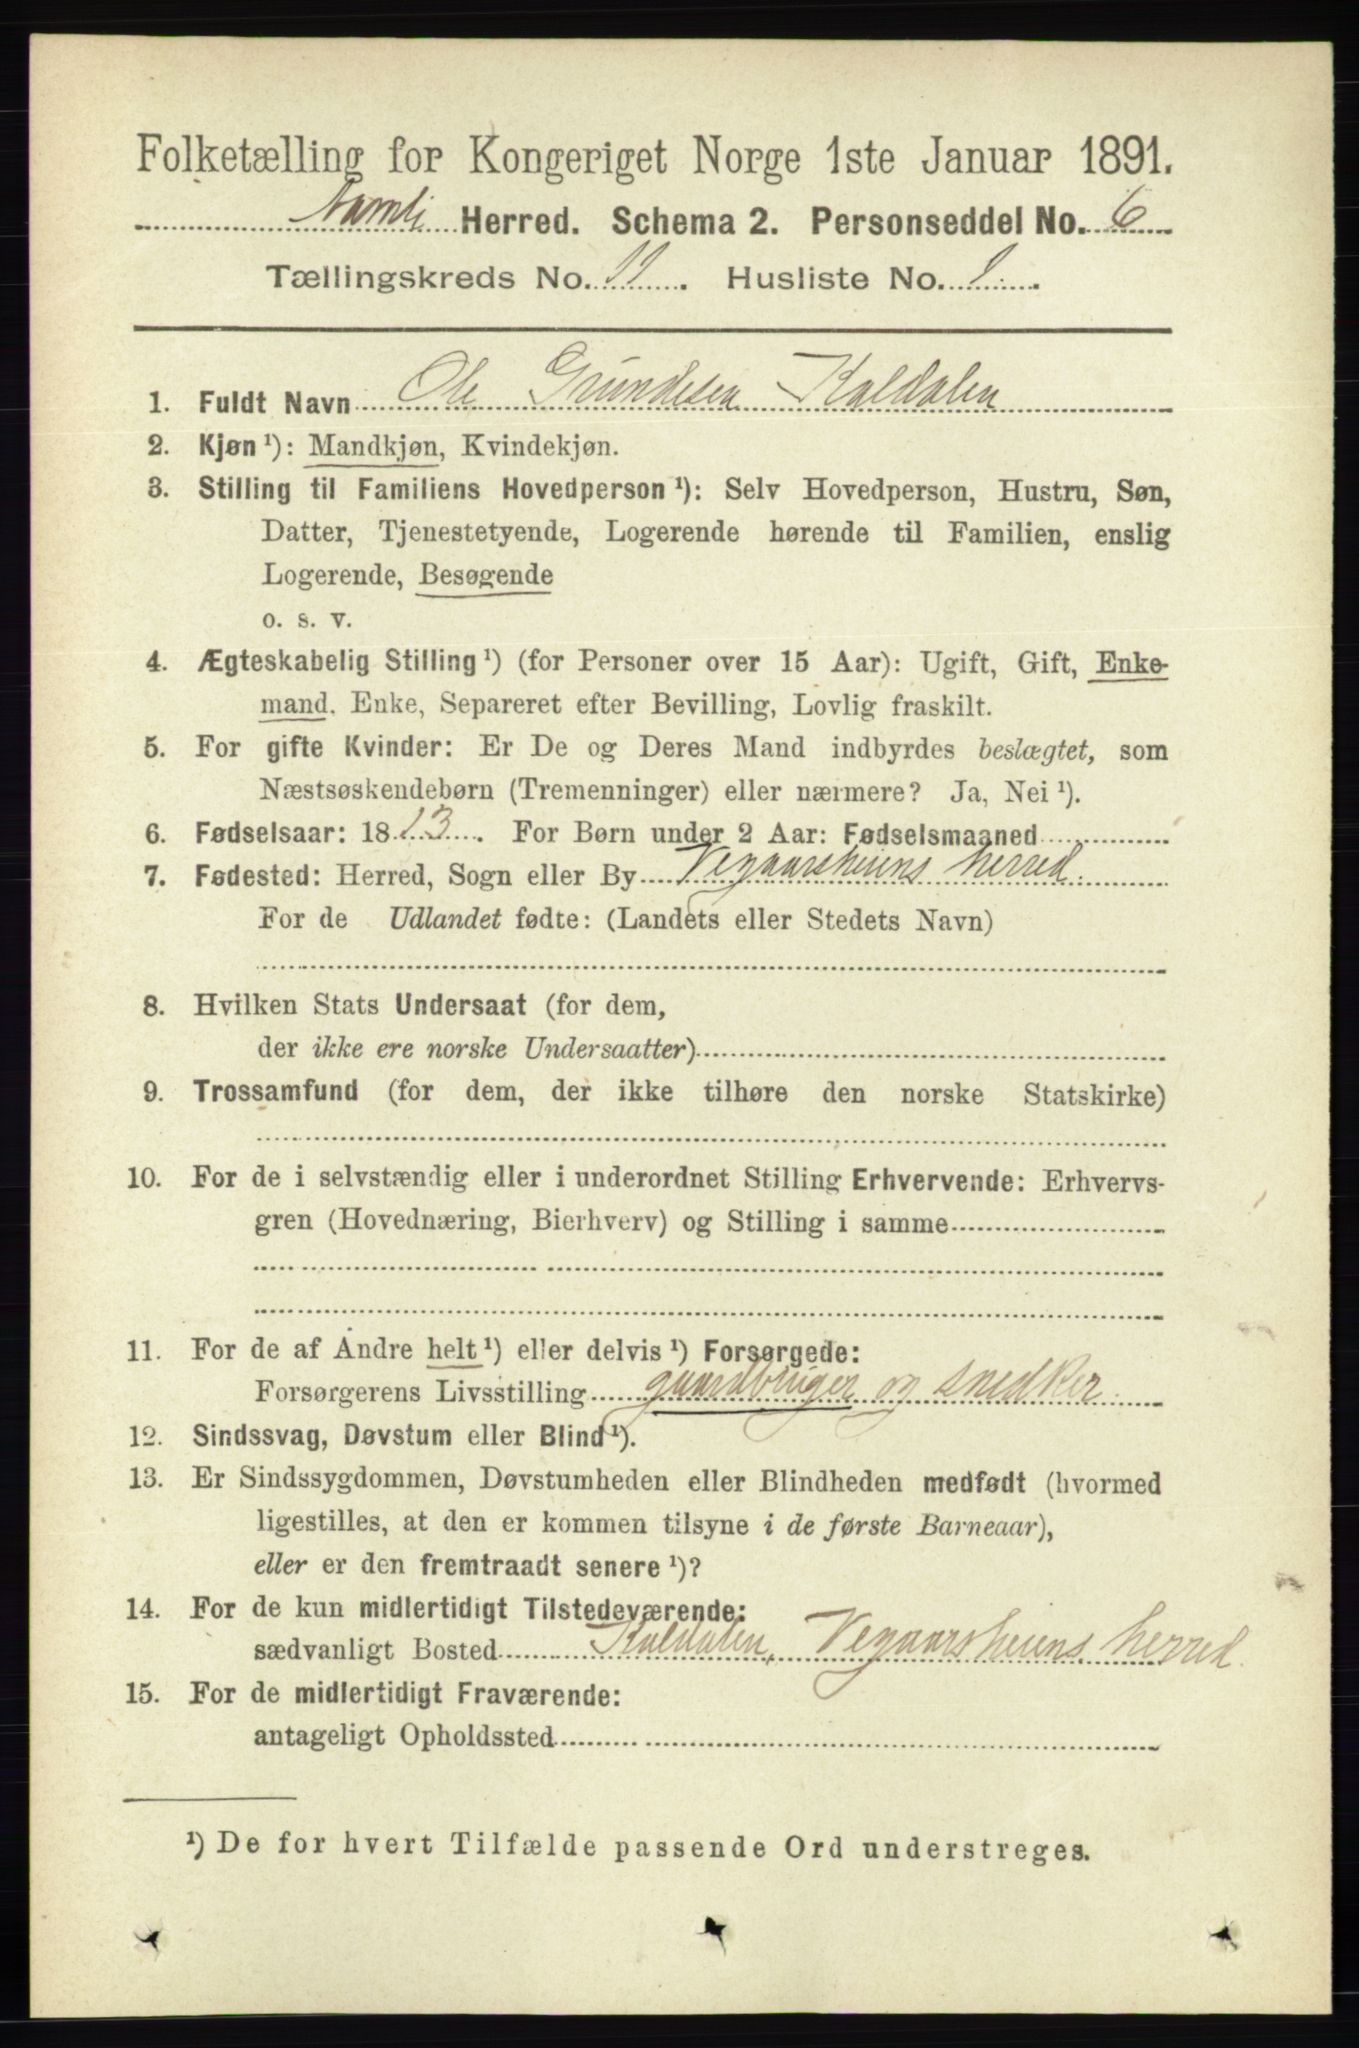 Folketælling for Kongeriget Norge 1ste Januar 1891.
Aamli Herred. Schema 2. Personseddel No. 6
Tællingskreds No. 11. Husliste No. 1.
1. Fuldt Navn Ole Grundesen Kaldalen
2. Kjøn ¹): Mandkjøn, Kvindekjøn.
3. Stilling til Familiens Hovedperson ¹): Selv Hovedperson, Hustru, Søn,
Datter, Tjenestetyende, Logerende hørende til Familien, enslig
Logerende, Besøgende
o. s. v.
4. Ægteskabelig Stilling ¹) (for Personer over 15 Aar): Ugift, Gift, Enke-
mand, Enke, Separeret efter Bevilling, Lovlig fraskilt.
5. For gifte Kvinder: Er De og Deres Mand indbyrdes beslægtet, som
Næstsøskendebørn (Tremenninger) eller nærmere? Ja, Nei ¹).
6. Fødselsaar: 1813. For Børn under 2 Aar: Fødselsmaaned
7. Fødested: Herred, Sogn eller By Vegaarsheiens herred.
For de Udlandet fødte: (Landets eller Stedets Navn)
8. Hvilken Stats Undersaat (for dem,
der ikke ere norske Undersaatter)
9. Trossamfund (for dem, der ikke tilhøre den norske Statskirke)
10. For de i selvstændig eller i underordnet Stilling Erhvervende: Erhvervs-
gren (Hovednæring, Bierhverv) og Stilling i samme
11. For de af Andre helt ¹) eller delvis ¹) Forsørgede:
Forsørgerens Livsstilling gaardbruger og snedker.
12. Sindssvag, Døvstum eller Blind ¹).
13. Er Sindssygdommen, Døvstumheden eller Blindheden medfødt (hvormed
ligestilles, at den er kommen tilsyne i de første Barneaar),
eller er den fremtraadt senere ¹)?
14. For de kun midlertidigt Tilstedeværende:
sædvanligt Bosted Kaldalen, Vegaarsheiens herred.
15. For de midlertidigt Fraværende:
antageligt Opholdssted
¹) De for hvert Tilfælde passende Ord understreges.